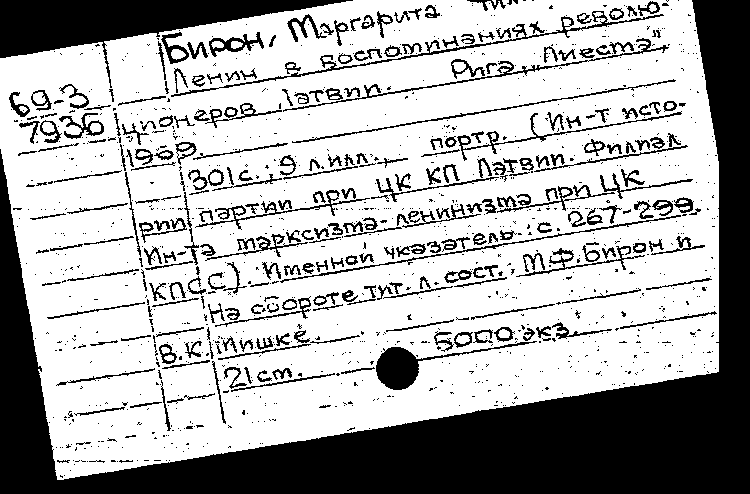 Бирон, Маргарита
Ленин в воспоминаниях револю-
69-3
7936
ционеров Латвии. Рига, „Лиесма",
1969.
301с.; 9 л.илл., портр. (Ин-т исто-
рии партии при ЦК КП Латвии. Филиал
Ин-та марксизма-ленинизма при ЦК
КПСС). Именной указатель: с. 267-299.
На обороте тит. л. сост.: М.Ф.Бирон и
В.К. Мишке.
21 см. 5000 экз.